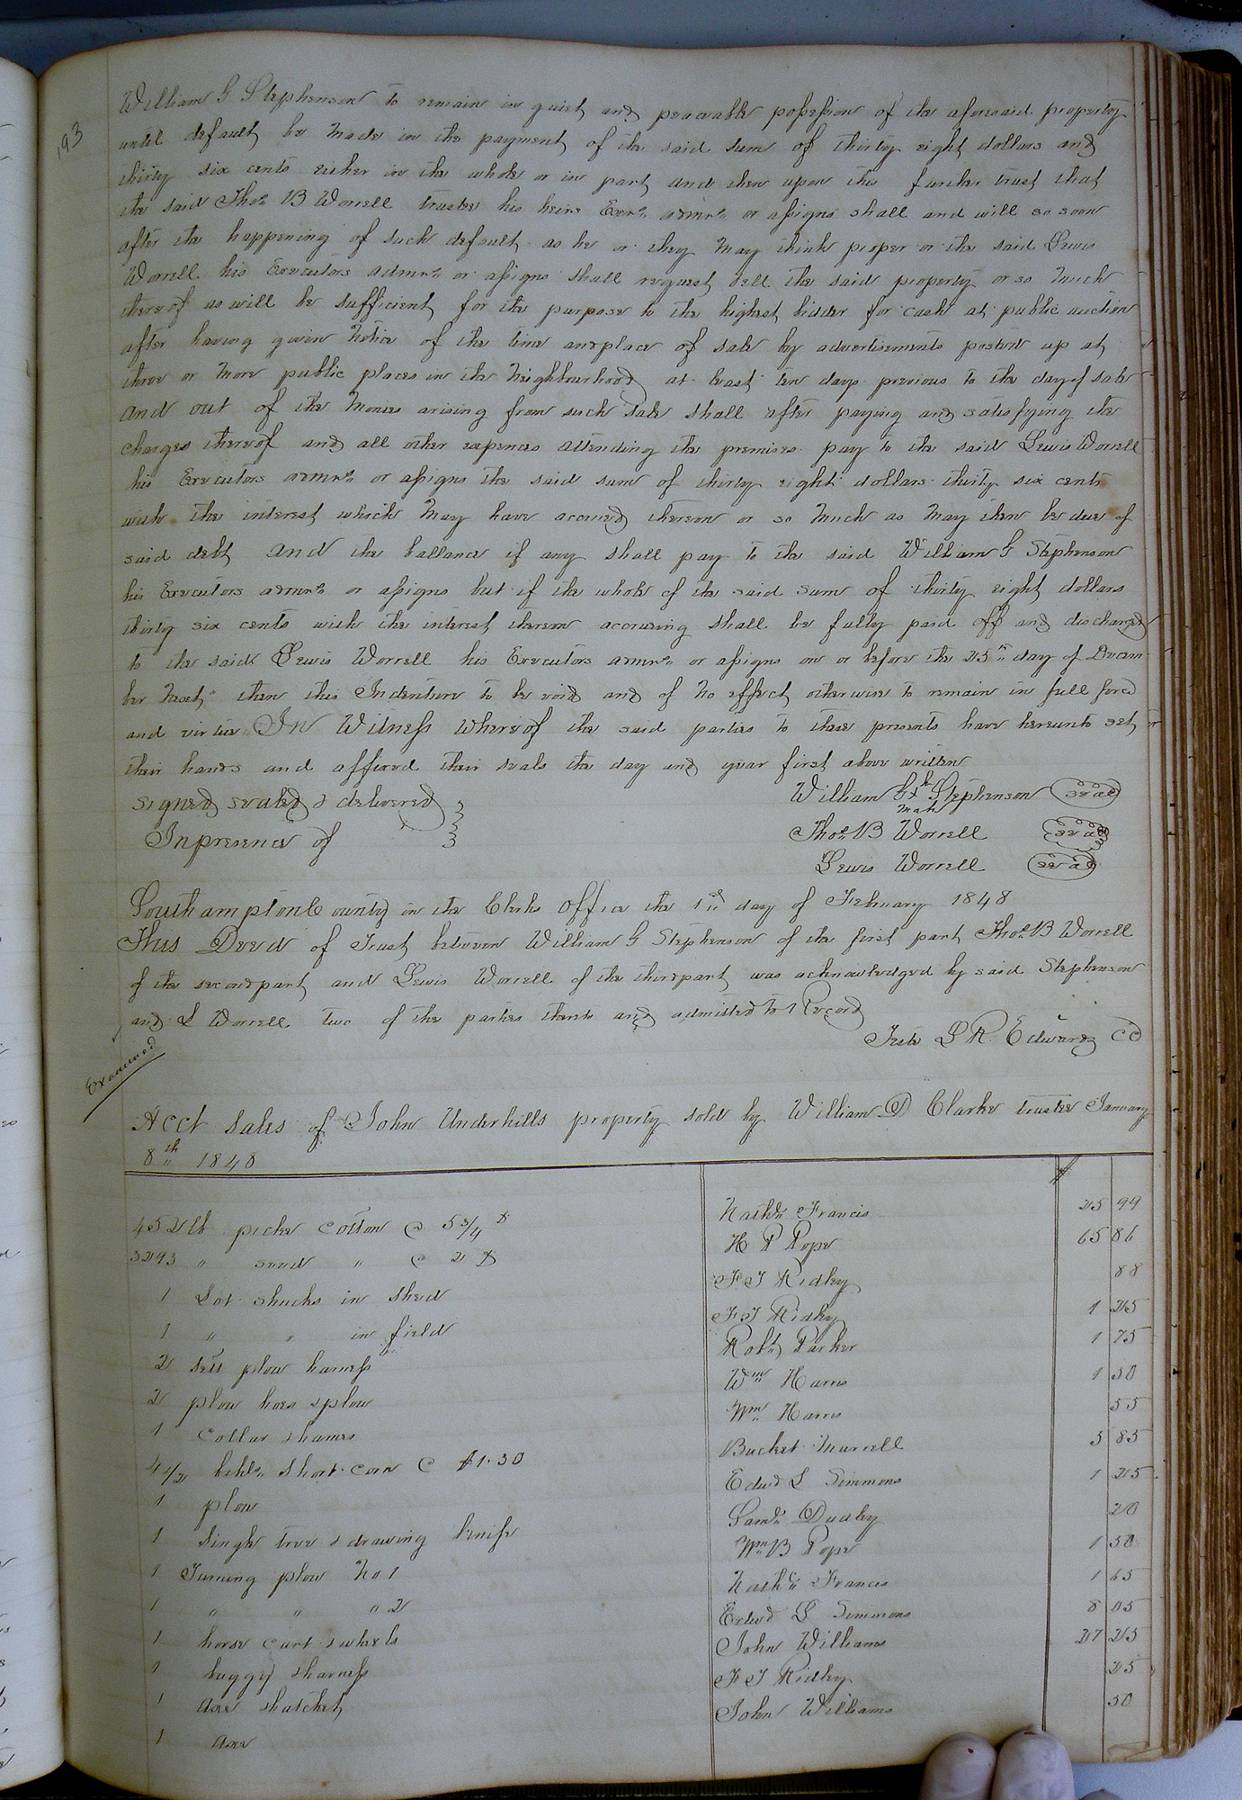 193
William G Stephenson to remain in quiet and peaceable possession of the aforesaid property
until default be made in the payment of the said sum of thirty eight dollars and
thirty six cents either in the whole or in part and then upon this further trust that
the said Thos. B Worrell trustee his heirs Exors. admrs. or assigns shall and will so soon
after the happening of such default as he or they may think proper or the said Lewis
Worrell his Executors admrs. or assigns shall request sell the said property or so much
thereof as will be sufficient for the purpose to the highest bidder for cash at public auction
after having given notice of the time and place of sale by advertisements posted up at
three or more public places in the neighbourhood at least ten days previous to the day of sale
And out of the monies arising from such sale shall after paying and satisfying the
charges thereof and all other expences attending the premises pay to the said Lewis Worrell
his Executors admrs. or assigns the said sum of thirty eight dollars thirty six cents
with the interest which may have accrued thereon or so much as may then be due of
said debt And the ballance if any shall pay to the said William G Stephenson
his Executors admrs. or assigns but if the whole of the said sum of thirty eight dollars
thirty six cents with the interest thereon accruing shall be fully paid off and discharged
to the said Lewis Worrell his Executors admrs. or assigns on or before the 25th day of Decem
ber next then this Indenture to be void and of no effect otherwise to remain in full force
and virtue In Witness whereof the said parties to these presents have hereunto set
their hands and affixed their seals the day and year first above written
signed sealed & delivered
In presence of
William G x Stephenson seal
mark
Thos. B Worrell seal
Lewis Worrell seal
Southampton County in the Clerks office the 1st day of February 1848
This Deed of Trust between William G Stephenson of the first part Thos. B Worrell
of the second part and Lewis Worrell of the third part was acknowledged by said Stephenson
and L Worrell two of the parties thereto and admitted to Record
Teste L R Edwards CC
Examined
Acct Sales of John Underhills property sold by William D Clarke trustee January
8th 1848
452 lb picked Cotton @ 5 3/4 Nathl. Francis 25 99
3293 " seed " @ 2 H P Pope 65 86
1 Lot shucks in shed F T Ridley 88
1 " " in field F T Ridley 1 25
2 setts plow harness Robt. Parker 1 75
2 plow hoes & plow Wm Harris 1 50
1 Collar & hames Wm Harris 55
4 1/2 bbls. short corn @ $1.30 Bucket Murrell 5 85
1 plow Edwd L Simmons 1 25
1 single tree & drawing knife Saml. Dudley 20
1 Turning plow No 1 Wm B Pope 1 50
1 " " " 2 Nathl. Francis 1 65
1 horse cart & wheels Edwd L Simmons 8 05
1 buggy & harness John Williams 27 25
1 axe & hatchet F T Ridley 25
1 axe John Williams 50